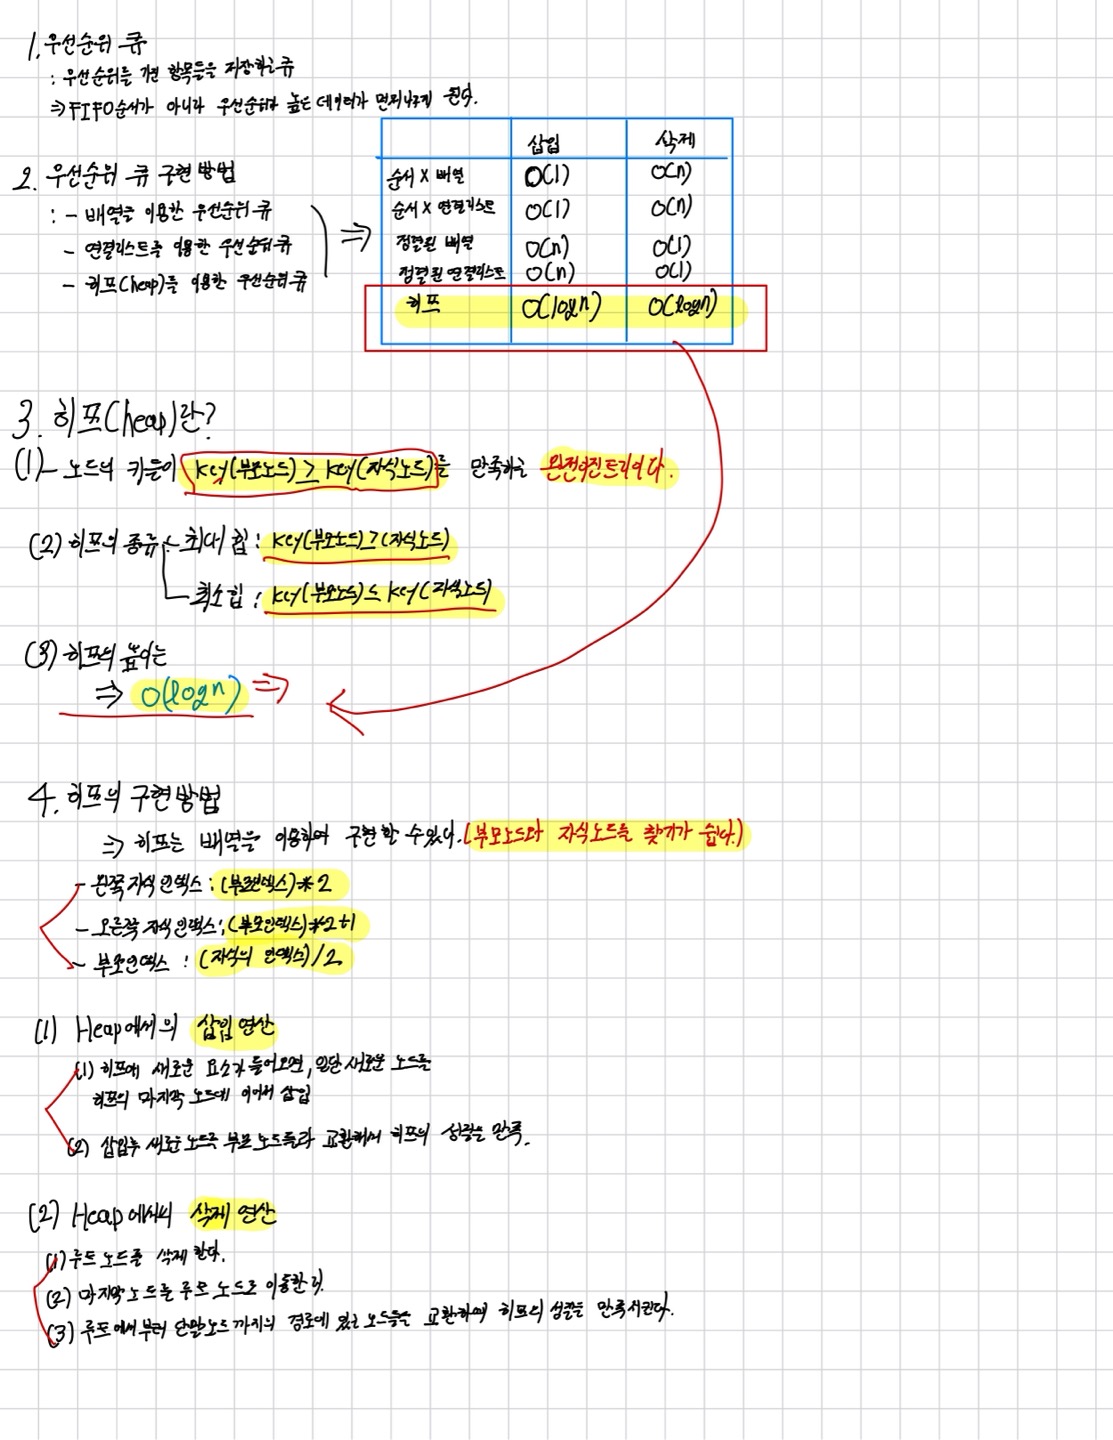 1. 우선순위 큐
: 우선순위를 가진 항목들을 저장하는 큐
⇒ FIFO순서가 아니라 우선순위가 높은 데이터가 먼저 나가게 된다.
2. 우선순위 큐 구현 방법
: - 배열을 이용한 우선순위 큐
- 연결리스트를 이용한 우선순위 큐
- 히프(heap)를 이용한 우선순위 큐
⇒
삽입 삭제
순서 X 배열 O(1) O(n)
순서 X 연결리스트 O(1) O(n)
정렬된 배열 O(n) O(1)
정렬된 연결리스트 O(n) O(1)
히프 O(logn) O(logn)
3. 히프(heap)란?
(1) - 노드의 키들이 key(부모노드) ≥ key(자식노드)를 만족하는 완전이진트리이다.
(2) 히프의 종류 - 최대 힙 : key(부모노드) ≥ (자식노드)
최소힙 : key(부모노드) ≤ key(자식노드)
(3) 히프의 높이는
⇒ O(logn) ⇒
4. 히프의 구현방법
⇒ 히프는 배열을 이용하여 구현할 수 있다. (부모노드와 자식노드를 찾기가 쉽다.)
- 왼쪽 자식 인덱스 : (부모인덱스)*2
- 오른쪽 자식 인덱스 : (부모인덱스)*2+1
- 부모인덱스 : (자식의 인덱스)/2
(1) Heap에서의 삽입 연산
(1) 히프에 새로운 요소가 들어오면, 일단 새로운 노드를
히프의 마지막 노드에 이어서 삽입
(2) 삽입후 새로운 노드를 부모 노드들과 교환해서 히프의 성질을 만족.
(2) Heap에서의 삭제 연산
(1) 루트 노드를 삭제 한다.
(2) 마지막 노드를 루트 노드로 이동한다.
(3) 루트에서부터 단말노드까지의 경로에 있는 노드들을 교환하여 히프의 성질을 만족시킨다.